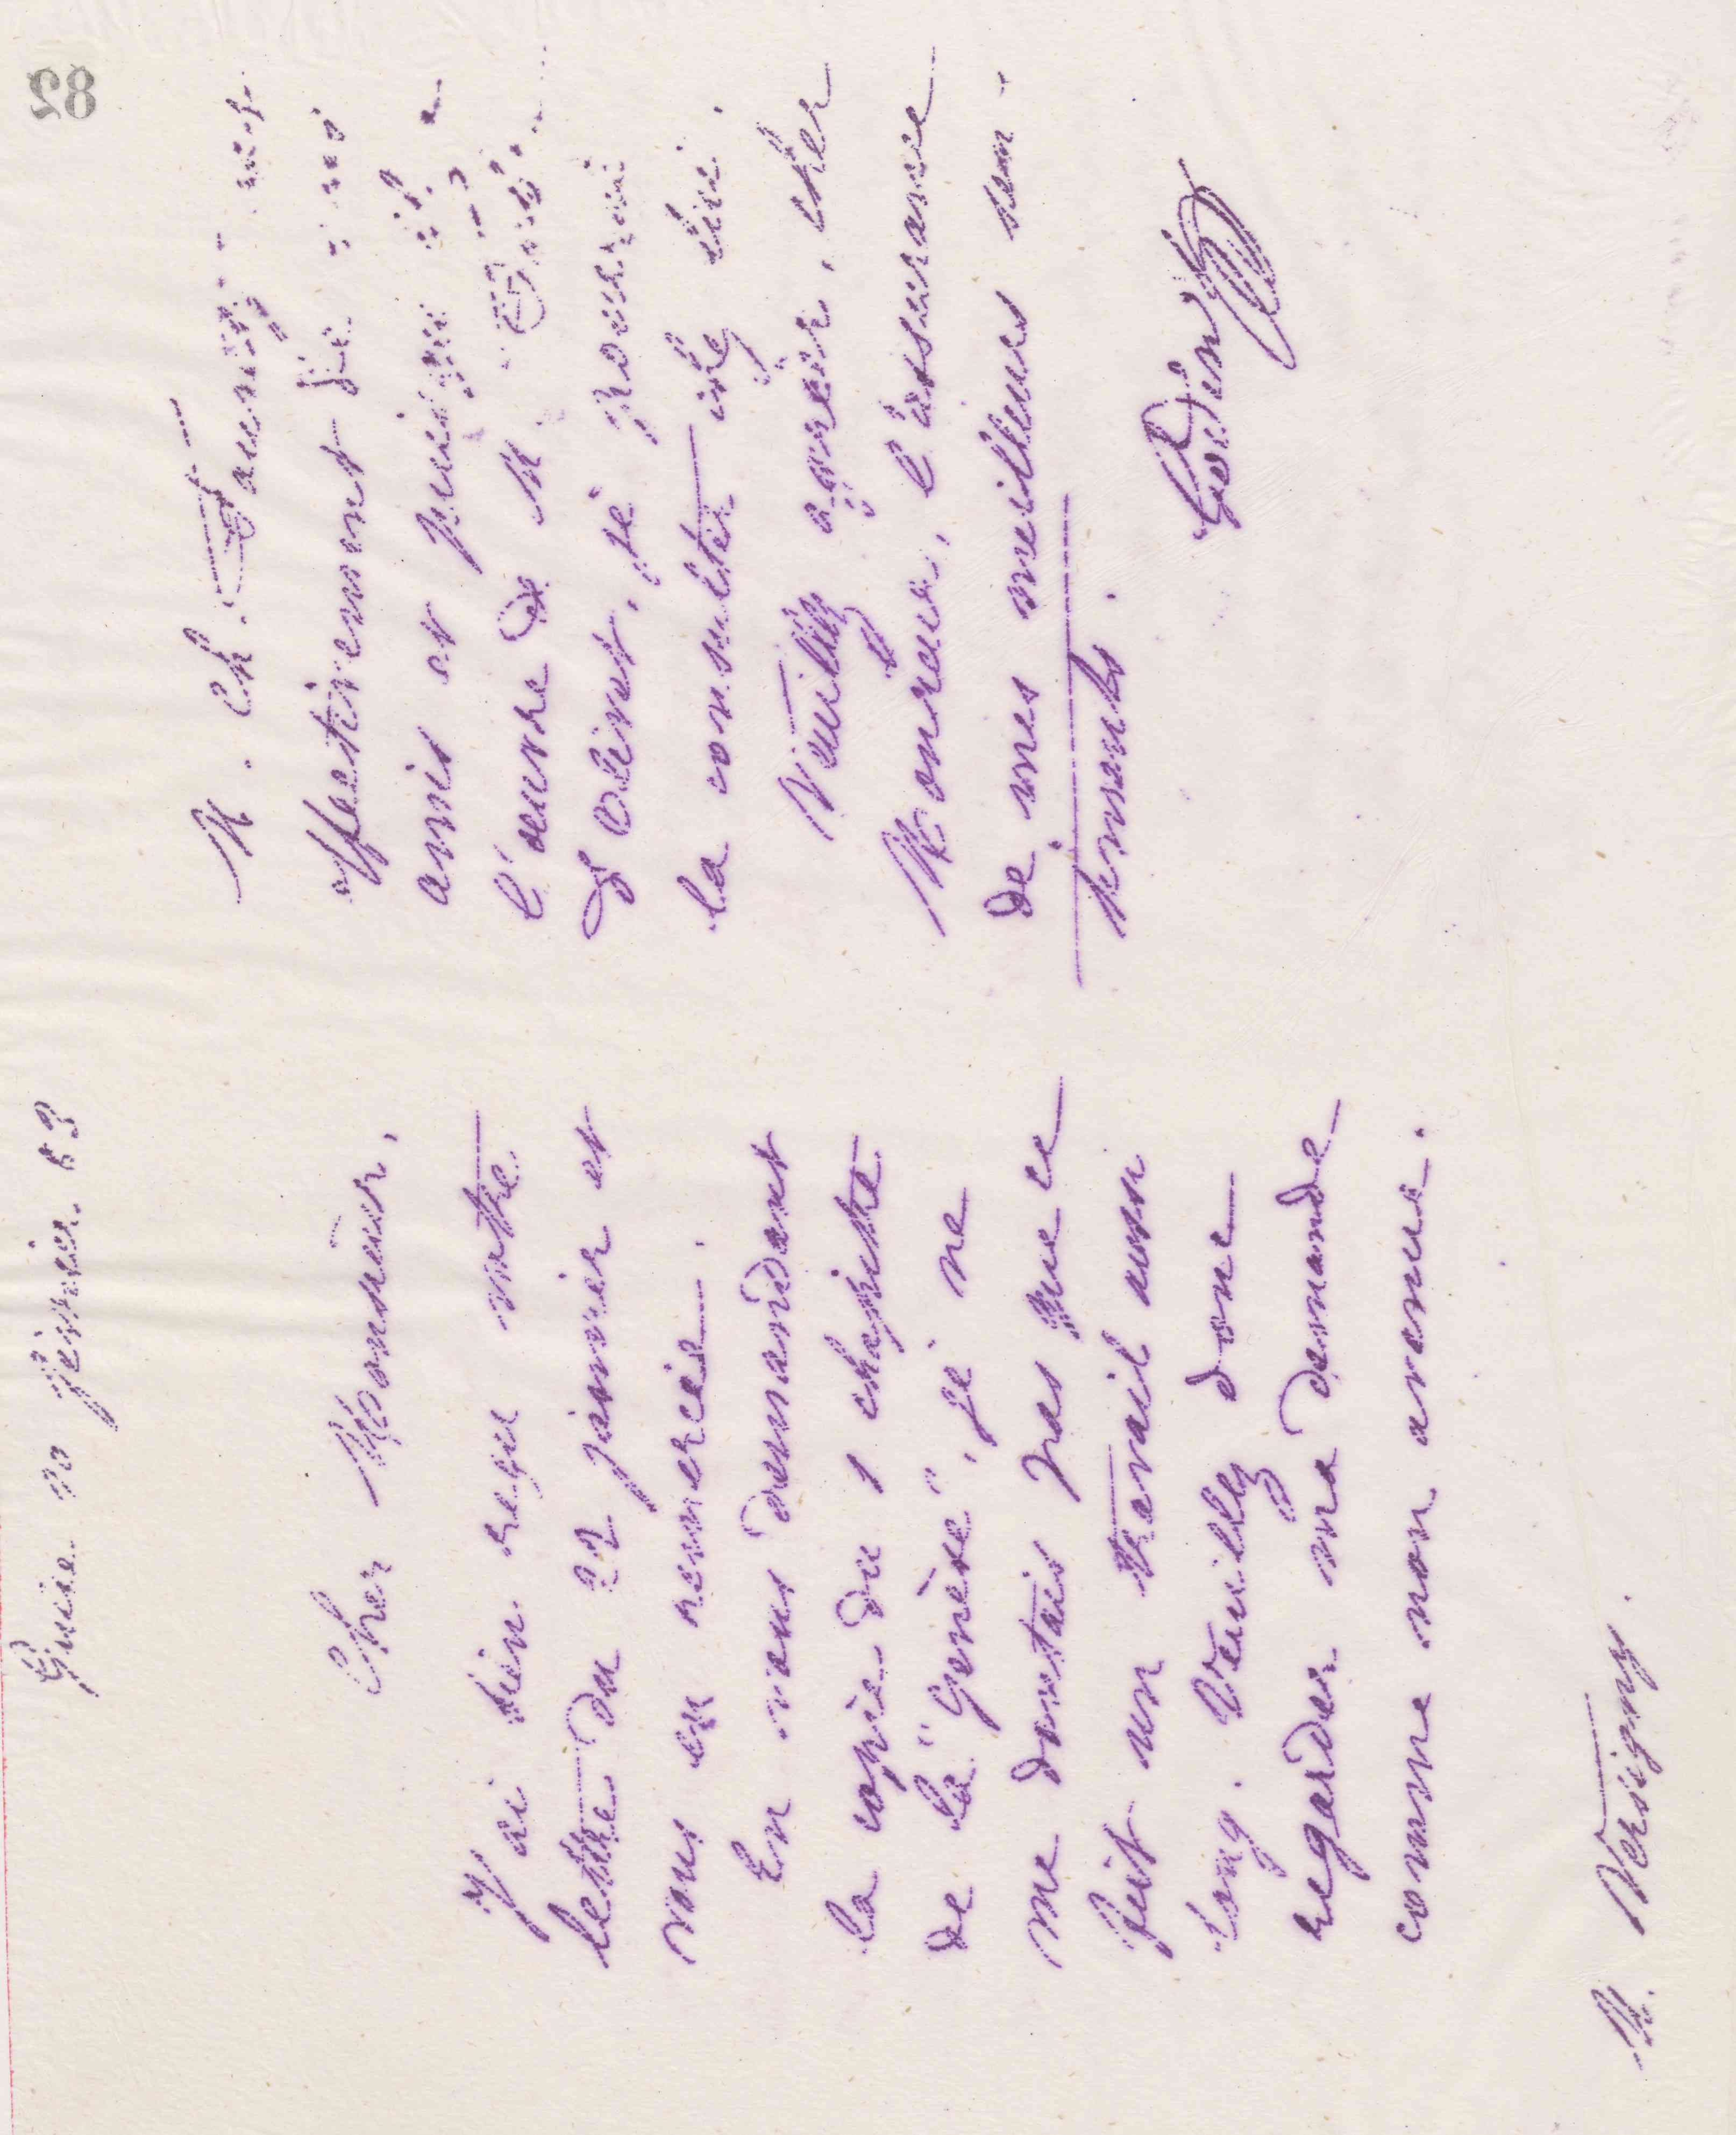 82
Guise février 83
Cher Monsieur,
J'ai bien reçu votre
lettre du 22 janvier et
vous en remercie.
En vous demandant
la copie du 1 chapitre
de la "Genèse", je ne
me doutais pas que ce
fut un travail aussi
long. Veuillez donc
regarder ma demande
comme non avenue.
M. Versigny.
M. Ch.
effectivement
amis et puisque
l'œuvre de M.
d'Olivet, je pourrai
la consulter ici.
Veuillez agréer, cher
Monsieur, l'assurance
de mes meilleurs sen-
timents.
Godin